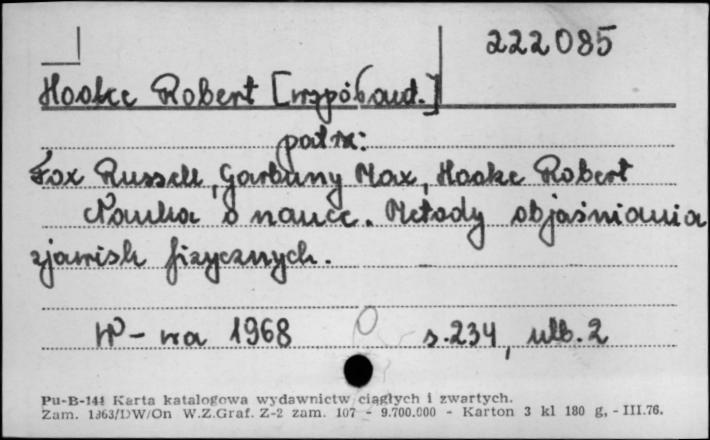 222085
Hooke Robert [współaut.]
patrz:
Fox Russell, Garbuny Max, Hooke Robert
Nauka o nauce. Metody objaśniania
zjawisk fizycznych.
W-wa 1968 s.234, ulb.2
Pu-B-141 Karta katalogowa wydawnictw ciągłych i zwartych.
Zam. 1363/DW/On W.Z.Graf. Z-2 zam. 107 - 9.700.000 - Karton 3 kl 180 g, - III.76.